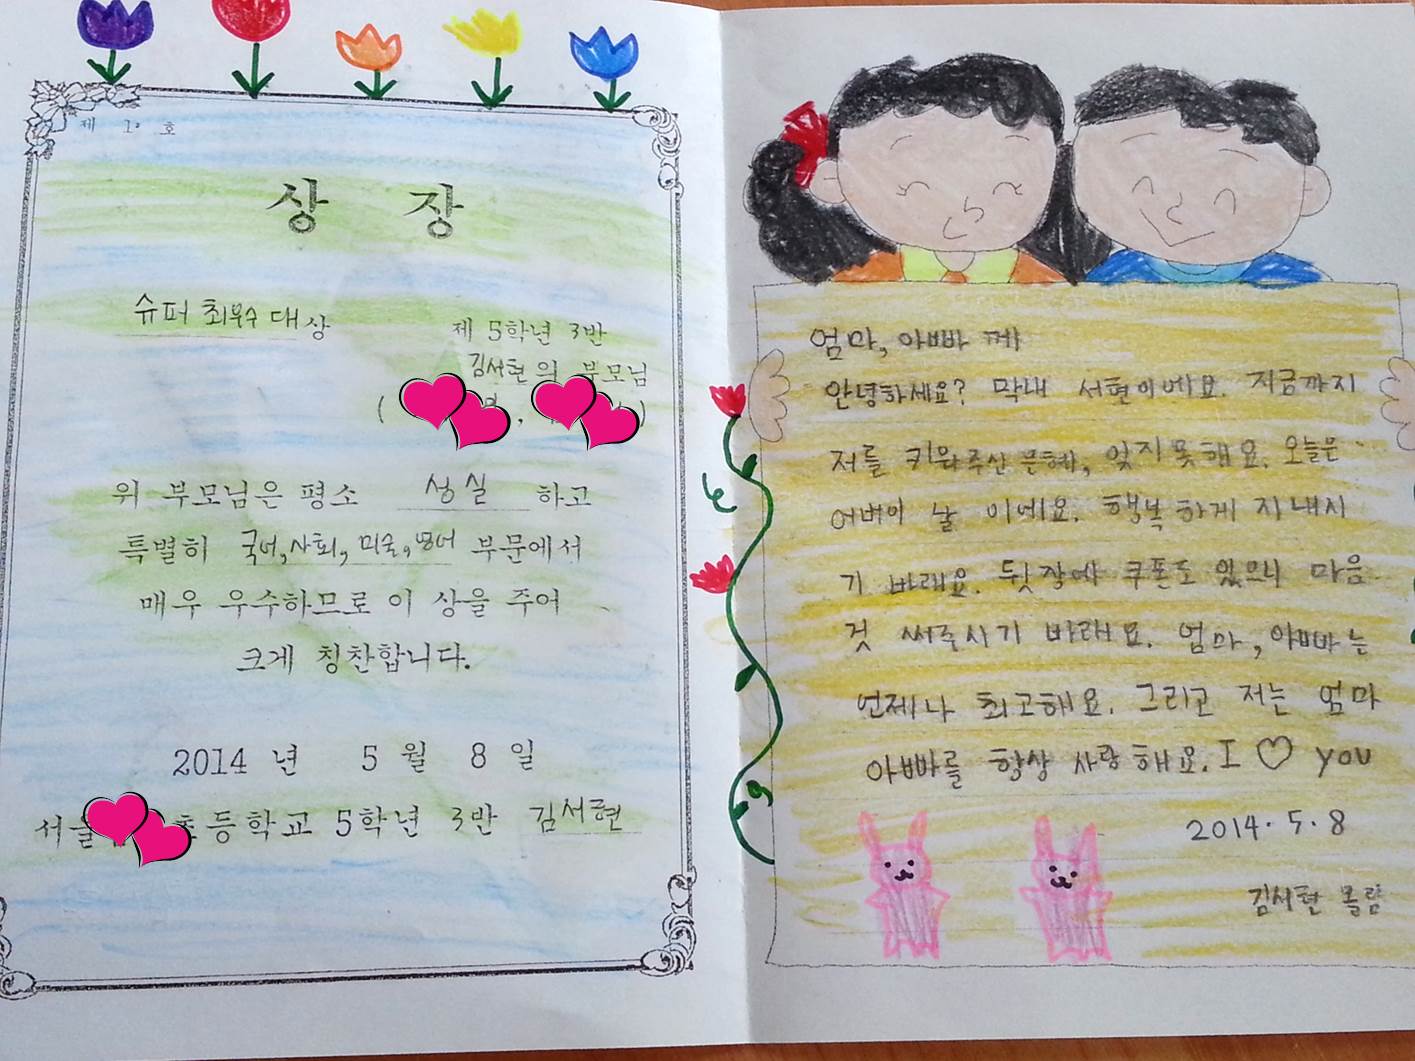 제 10 호
상 장
슈퍼 최우수 대상
제 5학년 3반
김서현의 부모님
( , )
위 부모님은 평소 성실 하고
특별히 국어, 사회, 미술, 영어 부문에서
매우 우수하므로 이 상을 주어
크게 칭찬합니다.
2014 년 5 월 8 일
서울 초등학교 5학년 3반 김서현
엄마, 아빠 께
안녕하세요? 막내 서현이에요. 지금까지
저를 키워주신 은혜, 잊지못해요. 오늘은
어버이 날 이에요. 행복하게 지내시
기 바래요. 뒷장에 쿠폰도 있으니 마음
것 써주시기 바래요. 엄마, 아빠는
언제나 최고해요. 그리고 저는 엄마
아빠를 항상 사랑해요. I ♡ you
2014. 5. 8
김서현 올림